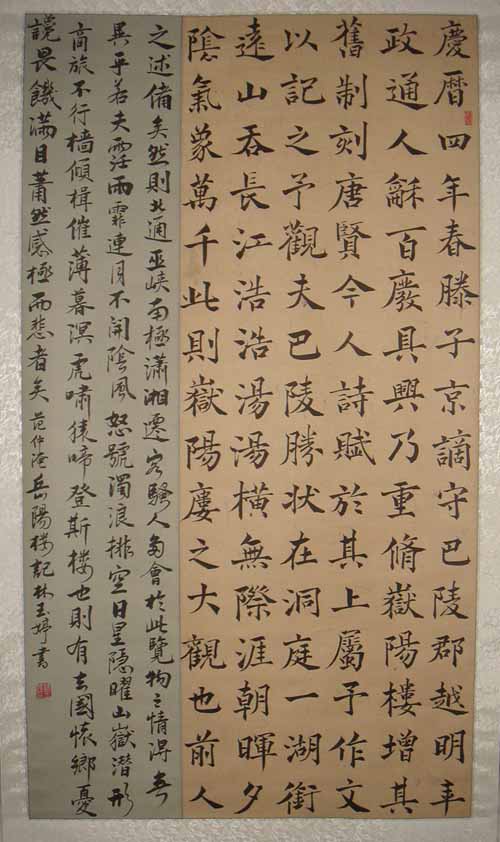 慶曆四年春滕子京謫守巴陵郡越明年
政通人龢百廢具興乃重脩嶽陽樓增其
舊制刻唐賢今人詩賦於其上屬予作文
以記之予觀夫巴陵勝狀在洞庭一湖銜
遠山吞長江浩浩湯湯橫無際涯朝暉夕
陰氣象萬千此則嶽陽廔之大觀也前人
之述備矣然則北通巫峽南極瀟湘遷客騷人多會於此覽物之情得無
異乎若夫霪雨霏連月不開陰風怒號濁浪排空日星隱曜山嶽潛形
商旅不行檣傾楫摧薄暮溟虎嘯猿啼登斯楼也則有去國懷鄉憂
讒畏譏滿目蕭然感極而悲者矣 范仲淹岳陽楼記林玉婷書